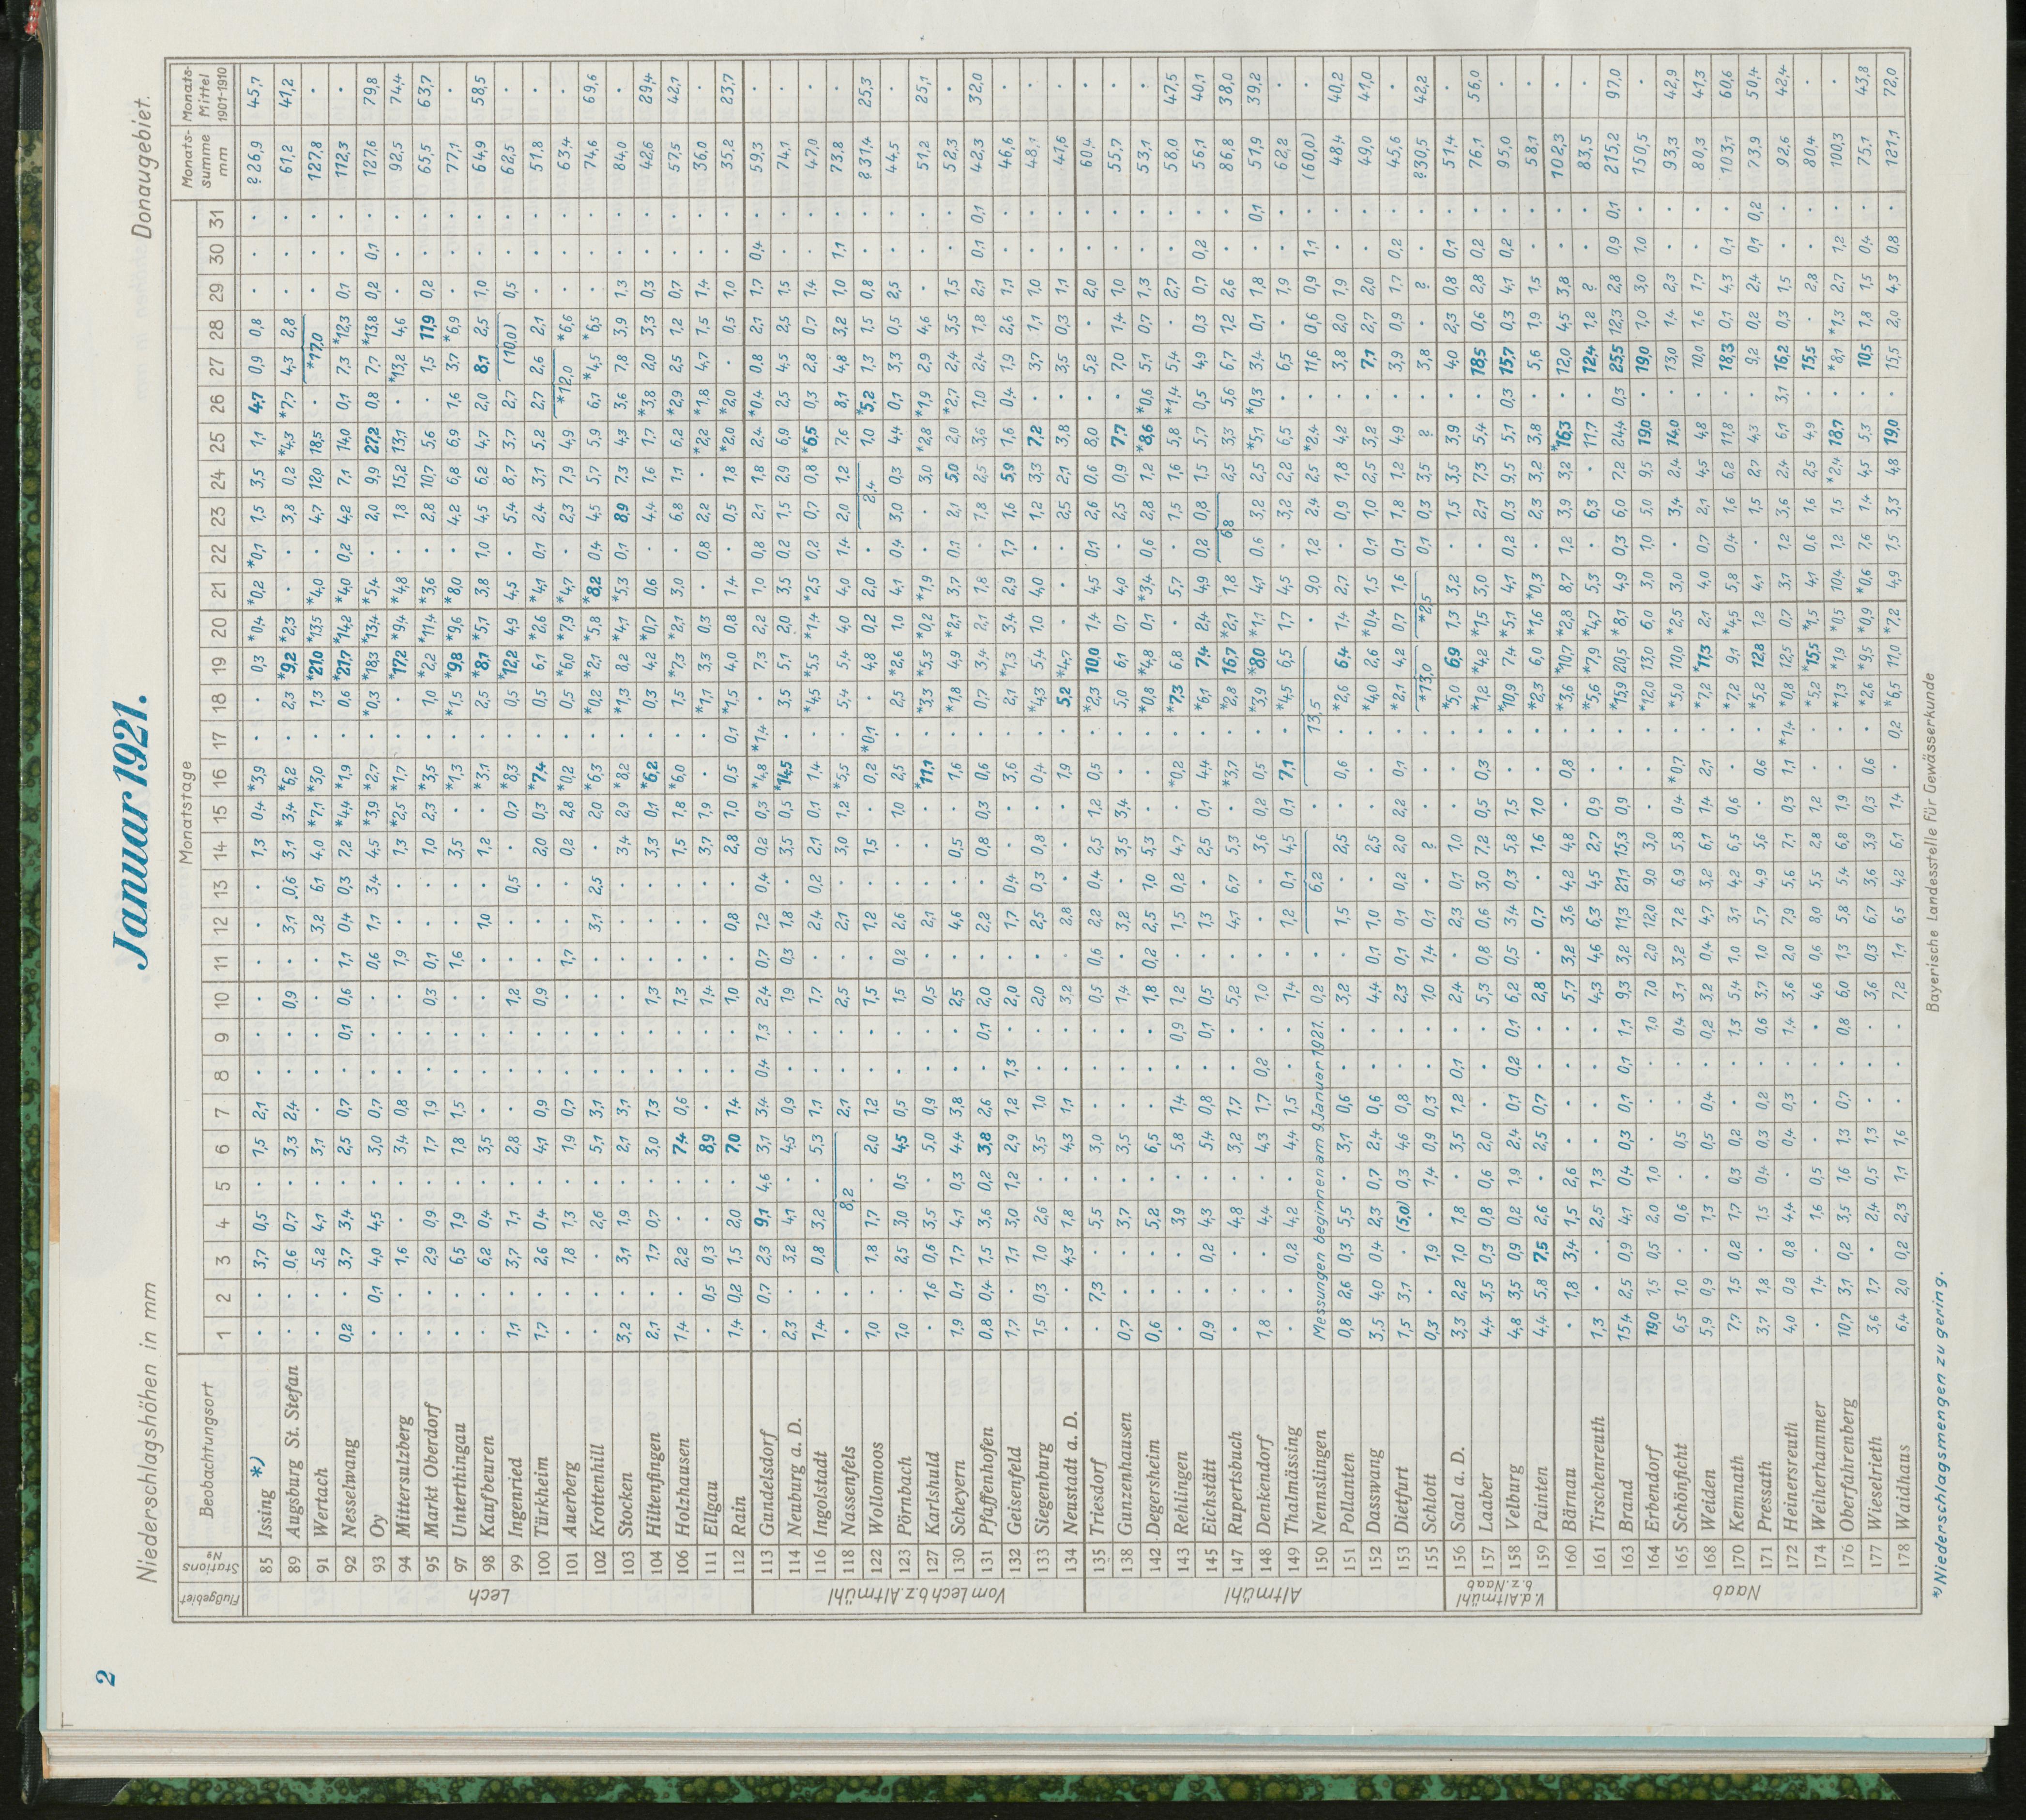 2
Januar 1921.
Niederschlagshöhen in mm
Donaugebiet.
Flußgebiet Stations No Beobachtungsort Monatstage Monats-summe mm Monats-Mittel 1901-1910
1 2 3 4 5 6 7 8 9 10 11 12 13 14 15 16 17 18 19 20 21 22 23 24 25 26 27 28 29 30 31
Lech
85 Issing *) · · 3,7 0,5 · 1,5 2,1 · · · · · · 1,3 0,4 *3,9 · · 0,3 *0,4 *0,2 *0,1 1,5 3,5 1,1 4,7 0,9 0,8 · · · ?26,9 45,7
89 Augsburg St. Stefan · · 0,6 0,7 · 3,3 2,4 · · 0,9 · 3,1 0,6 3,1 3,4 *6,2 · 2,3 *9,2 *2,3 · · 3,8 0,2 *4,3 *7,7 4,3 2,8 · · · 61,2 41,2
91 Wertach · · 5,2 4,1 · 3,1 · · · · · 3,2 6,1 4,0 *7,1 *3,0 · 1,3 *21,0 *13,5 *4,0 · 4,7 12,0 18,5 · *17,0 · · · 127,8 ·
92 Nesselwang 0,2 · 3,7 3,4 · 2,5 0,7 · 0,1 0,6 1,1 0,4 0,3 7,2 *4,4 *1,9 · 0,6 *21,7 *14,2 *4,0 0,2 4,2 7,1 14,0 0,1 7,3 *12,3 0,1 · · 112,3 ·
93 Oy · 0,1 4,0 4,5 · 3,0 0,7 · · · 0,6 1,1 3,4 4,5 *3,9 *2,7 · *0,3 *18,3 *13,4 *5,4 · 2,0 9,9 27,2 0,8 7,7 *13,8 0,2 0,1 · 127,6 79,8
94 Mittersulzberg · · 1,6 · · 3,4 0,8 · · · 1,9 · · 1,3 *2,5 *1,7 · · *17,2 *9,4 *4,8 · 1,8 15,2 13,1 · *13,2 4,6 · · · 92,5 74,4
95 Markt Oberdorf · · 2,9 0,9 · 1,7 1,9 · · 0,3 0,1 · · 1,0 2,3 *3,5 · 1,0 *2,2 *11,4 *3,6 · 2,8 10,7 5,6 · 1,5 11,9 0,2 · · 65,5 63,7
97 Unterthingau · · 6,5 1,9 · 1,8 1,5 · · · 1,6 · · 3,5 · *1,3 · *1,5 *9,8 *9,6 *8,0 · 4,2 6,8 6,9 1,6 3,7 *6,9 · · · 77,1 ·
98 Kaufbeuren · · 6,2 0,4 · 3,5 · · · · · 1,0 · 1,2 · *3,1 · 2,5 *8,1 *5,1 3,8 1,0 4,5 6,2 4,7 2,0 8,1 2,5 1,0 · · 64,9 58,5
99 Ingenried 1,1 · 3,7 1,1 · 2,8 · · · 1,2 · · 0,5 · 0,7 *8,3 · 0,5 *12,2 4,9 4,5 · 5,4 8,7 3,7 2,7 (10,0) 0,5 · · 62,5 ·
100 Türkheim 1,7 · 2,6 0,4 · 4,1 0,9 · · 0,9 · · · 2,0 0,3 *7,4 · 0,5 6,1 *2,6 *4,1 0,1 2,4 3,1 5,2 2,7 2,6 2,1 · · · 51,8 ·
101 Auerberg · · 1,8 1,3 · 1,9 0,7 · · · 1,7 · · 0,2 2,8 *0,2 · 0,5 *6,0 *7,9 *4,7 · 2,3 7,9 4,9 *12,0 *6,6 · · · 63,4 ·
102 Krottenhill · · · 2,6 · 5,1 3,1 · · · · 3,1 2,5 · 2,0 *6,3 · *0,2 *2,1 *5,8 *8,2 0,4 4,5 5,7 5,9 6,1 *4,5 *6,5 · · · 74,6 69,6
103 Stocken 3,2 · 3,1 1,9 · 2,1 3,1 · · · · · · 3,4 2,9 *8,2 · *1,3 8,2 *4,1 *5,3 0,1 8,9 7,3 4,3 3,6 7,8 3,9 1,3 · · 84,0 ·
104 Hiltenfingen 2,1 · 1,7 0,7 · 3,0 1,3 · · 1,3 · · · 3,3 0,1 *6,2 · 0,3 4,2 *0,7 0,6 · 4,4 1,6 1,7 *3,8 2,0 3,3 0,3 · · 42,6 29,4
106 Holzhausen 1,4 · 2,2 · · 7,4 0,6 · · 1,3 · · · 1,5 1,8 *6,0 · 1,5 *7,3 *2,1 3,0 · 6,8 1,1 6,2 *2,9 2,5 1,2 0,7 · · 57,5 42,1
111 Ellgau · 0,5 0,3 · · 8,9 · · · 1,4 · · · 3,7 1,9 · · *1,1 3,3 0,3 · 0,8 2,2 · *2,2 *1,8 4,7 1,5 1,4 · · 36,0 ·
112 Rain 1,4 0,2 1,5 2,0 · 7,0 1,4 · · 1,0 · 0,8 · 2,8 1,0 0,5 0,1 *1,5 4,0 0,8 1,4 · 0,5 1,8 *2,0 *2,0 · 0,5 1,0 · · 35,2 23,7
Vom Lech b. z. Altmühl
113 Gundelsdorf · 0,7 2,3 9,1 4,6 3,1 3,4 0,4 1,3 2,4 0,7 1,2 0,4 0,2 0,3 *4,8 *1,4 · 7,3 2,2 1,0 0,8 2,1 1,8 2,4 *0,4 0,8 2,1 1,7 0,4 · 59,3 ·
114 Neuburg a. D. 2,3 · 3,2 4,1 · 4,5 0,9 · · 1,9 0,3 1,8 · 3,5 0,5 *14,5 · 3,5 5,1 2,0 3,5 0,2 1,5 2,9 6,9 2,5 4,5 2,5 1,5 · · 74,1 ·
116 Ingolstadt 1,4 · 0,8 3,2 · 5,3 1,1 · · 1,7 · 2,4 0,2 2,1 0,1 1,4 · *4,5 *5,5 *1,4 *2,5 0,2 0,7 0,8 *6,5 0,3 2,8 0,7 1,4 · · 47,0 ·
118 Nassenfels · · 8,2 2,1 · · 2,5 · 2,1 · 3,0 1,2 *5,5 · 5,4 5,4 4,0 4,0 1,4 2,0 1,2 7,6 8,1 4,8 3,2 1,0 1,1 · 73,8 ·
122 Wollomoos 1,0 · 1,8 1,7 · 2,0 1,2 · · 1,5 · 1,2 · 1,5 · 0,2 *0,1 · 4,8 0,2 2,0 · 2,4 1,0 *5,2 1,3 1,5 0,8 · · ?31,4 25,3
123 Pörnbach 1,0 · 2,5 3,0 0,5 4,5 0,5 · · 1,5 0,2 2,6 · · 1,0 2,5 · 2,5 *2,6 1,0 4,1 0,4 3,0 0,3 4,4 0,1 3,3 0,5 2,5 · · 44,5 ·
127 Karlshuld · 1,6 0,6 3,5 · 5,0 0,9 · · 0,5 · 2,1 · · · *11,1 · *3,3 *5,3 *0,2 *1,9 · · 3,0 *2,8 *1,9 2,9 4,6 · · · 51,2 25,1
130 Scheyern 1,9 0,1 1,7 4,1 0,3 4,4 3,8 · · 2,5 · 4,6 · 0,5 · 1,6 · *1,8 4,9 *2,1 3,7 0,1 2,1 5,0 2,0 *2,7 2,4 3,5 1,5 · · 52,3 ·
131 Pfaffenhofen 0,8 0,4 1,5 3,6 0,2 3,8 2,6 · 0,1 2,0 · 2,2 · 0,8 0,3 0,6 · 0,7 3,4 2,1 1,8 · 1,8 2,5 3,6 1,0 2,4 1,8 2,1 0,1 0,1 42,3 32,0
132 Geisenfeld 1,7 · 1,1 3,0 1,2 2,9 1,2 1,3 · 2,0 · 1,7 0,4 · · 3,6 · 2,1 *1,3 3,4 2,9 1,7 1,6 5,9 1,6 0,4 1,9 2,6 1,1 · · 46,6 ·
133 Siegenburg 1,5 0,3 1,0 2,6 · 3,5 1,0 · · 2,0 · 2,5 0,3 0,8 · 0,4 · *4,3 5,4 1,0 4,0 · 1,2 3,3 7,2 · 3,7 1,1 1,0 · · 48,1 ·
134 Neustadt a. D. · · 4,3 1,8 · 4,3 1,1 · · 3,2 · 2,8 · · · 1,9 · 5,2 *4,7 · · · 2,5 2,1 3,8 · 3,5 0,3 1,1 · · 41,6 ·
Altmühl
135 Triesdorf · 7,3 · 5,5 · 3,0 · · · 0,5 0,6 2,2 0,4 2,5 1,2 0,5 · *2,3 10,0 1,4 4,5 0,1 2,6 0,6 8,0 · 5,2 · 2,0 · · 60,4 ·
138 Gunzenhausen 0,7 · · 3,7 · 3,5 · · · 1,4 · 3,2 · 3,5 3,4 · · 5,0 6,1 0,7 4,0 · 2,5 0,9 7,7 · 7,0 1,4 1,0 · · 55,7 ·
142 Degersheim 0,6 · · 5,2 · 6,5 · · · 1,8 0,2 2,5 1,0 5,3 · · · *0,8 *4,8 0,1 *3,4 0,6 2,8 1,2 *8,6 *0,6 5,1 0,7 1,3 · · 53,1 ·
143 Rehlingen · · · 3,9 · 5,8 1,4 · 0,9 1,2 · 1,5 0,2 4,7 · *0,2 · *7,3 6,8 · 5,7 · 1,5 1,6 5,8 *1,4 5,4 · 2,7 · · 58,0 47,5
145 Eichstätt 0,9 · 0,2 4,3 · 5,4 0,8 · 0,1 0,5 · 1,3 · 2,5 0,1 4,4 · *6,1 7,4 2,4 4,9 0,2 0,8 1,5 5,7 0,5 4,9 0,3 0,7 0,2 · 56,1 40,1
147 Rupertsbuch · · · 4,8 · 3,2 1,7 · · 5,2 · 4,1 6,7 5,3 · *3,7 · *2,8 16,7 *2,1 1,8 6,8 2,5 3,3 5,6 6,7 1,2 2,6 · · 86,8 38,0
148 Denkendorf 1,8 · · 4,4 · 4,3 1,7 0,2 · 1,0 · · · 3,6 0,2 0,5 · *3,9 *8,0 *1,1 4,1 0,6 3,2 2,5 *5,1 *0,3 3,4 0,1 1,8 · 0,1 51,9 39,2
149 Thalmässing · · 0,2 4,2 · 4,4 1,5 · · 1,4 · 1,2 0,1 4,5 0,1 7,1 · *4,5 6,5 1,7 4,5 · 3,2 2,2 6,5 · 6,5 · 1,9 · · 62,2 ·
150 Nennslingen Messungen beginnen am 9. Januar 1921. 0,2 · 6,2 · · 13,5 · 9,0 1,2 2,4 2,5 *2,4 · 11,6 0,6 0,9 1,1 · (60,0) ·
151 Pollanten 0,8 2,6 0,3 5,5 · 3,1 0,6 · · 3,2 · 1,5 · 2,5 · 0,6 · *2,6 6,4 1,4 2,7 · 0,9 1,8 4,2 · 3,8 2,0 1,9 · · 48,4 40,2
152 Dasswang 3,5 4,0 0,4 2,3 0,7 2,4 0,6 · · 4,4 0,1 1,0 · 2,5 · · · *4,0 2,6 *0,4 1,5 0,1 1,0 2,5 3,2 · 7,1 2,7 2,0 · · 49,0 41,0
153 Dietfurt 1,5 3,1 · (5,0) 0,3 4,6 0,8 · · 2,3 0,1 0,1 0,2 2,0 2,2 0,1 · *2,1 4,2 0,7 1,6 0,1 1,8 1,2 4,9 · 3,9 0,9 1,7 0,2 · 45,6 ·
155 Schlott 0,3 · 1,9 · 1,4 0,9 0,3 · · 1,0 1,4 0,1 · ? · · · *13,0 *2,5 0,1 0,3 3,5 ? · 3,8 · ? · · ?30,5 42,2
V. d. Altmühl b. z. Naab
156 Saal a. D. 3,3 2,2 1,0 1,8 · 3,5 1,2 0,1 · 2,4 · 2,3 0,1 1,0 · · · *5,0 6,9 1,3 3,2 · 1,5 3,5 3,9 · 4,0 2,3 0,8 0,1 · 51,4 ·
157 Laaber 4,4 3,5 0,3 0,8 0,6 2,0 · · · 5,3 0,8 0,6 3,0 7,2 0,5 0,3 · *1,2 *4,2 *1,5 3,0 · 2,1 7,3 5,4 · 18,5 0,6 2,8 0,2 · 76,1 56,0
158 Velburg 4,8 3,5 0,9 0,2 1,9 2,4 0,1 0,2 0,1 6,2 0,5 3,4 0,3 5,8 1,5 · · *10,9 7,4 *5,1 4,1 0,2 0,3 9,5 5,1 0,3 15,7 0,3 4,1 0,2 · 95,0 ·
159 Painten 4,4 5,8 7,5 2,6 · 2,5 0,7 · · 2,8 · 0,7 · 1,6 1,0 · · *2,3 6,0 *1,6 *0,3 · 2,3 3,2 3,8 · 5,6 1,9 1,5 · · 58,1 ·
Naab
160 Bärnau · 1,8 3,4 1,5 2,6 · · · · 5,7 3,2 3,6 4,2 4,8 · 0,8 · *3,6 *10,7 *2,8 8,7 1,2 3,9 3,2 *16,3 · 12,0 4,5 3,8 · · 102,3 ·
161 Tirschenreuth 1,3 · · 2,5 1,3 · · · · 4,3 4,6 6,3 4,5 2,7 0,9 · · *5,6 *7,9 *4,7 5,3 · 6,3 · 11,7 · 12,4 1,2 ? · · 83,5 ·
163 Brand 15,4 2,5 0,9 4,1 0,4 0,3 0,1 0,1 1,1 9,3 3,2 11,3 21,1 15,3 0,9 · · *15,9 20,5 *8,1 4,9 0,3 6,0 7,2 24,4 0,3 25,5 12,3 2,8 0,9 0,1 215,2 97,0
164 Erbendorf 19,0 1,5 0,5 2,0 1,0 · · · 1,0 7,0 2,0 12,0 9,0 3,0 · · · *12,0 13,0 6,0 3,0 1,0 5,0 9,5 19,0 · 19,0 1,0 3,0 1,0 · 150,5 ·
165 Schönficht 6,5 1,0 · 0,6 · 0,5 · · 0,4 3,1 3,2 7,2 6,9 5,8 0,4 *0,7 · *5,0 10,0 *2,5 3,0 · 3,4 2,4 14,0 · 13,0 1,4 2,3 · · 93,3 42,9
168 Weiden 5,9 0,9 · 1,3 · 0,5 0,4 · 0,2 3,2 0,4 4,7 3,2 6,1 1,4 2,1 · *7,2 *11,3 2,1 4,0 0,7 2,1 4,5 4,8 · 10,0 1,6 1,7 · · 80,3 41,3
170 Kemnath 7,7 1,5 0,2 1,7 0,3 0,2 · · 1,3 5,4 1,0 3,1 4,2 6,5 0,6 · · *7,2 9,1 *4,5 5,8 0,4 1,6 6,2 11,8 · 18,3 0,1 4,3 0,1 · 103,1 60,6
171 Pressath 3,7 1,8 · 1,5 0,4 0,3 0,2 · 0,6 3,7 1,0 5,7 4,9 5,6 · 0,6 · *5,2 12,8 1,2 4,1 · 1,5 2,7 4,3 · 9,2 0,2 2,4 0,1 0,2 73,9 50,4
172 Heinersreuth 4,0 0,8 0,8 4,4 · 0,4 0,3 · 1,4 3,6 2,0 7,9 5,6 7,1 0,3 1,1 *1,4 *0,8 12,5 0,7 3,1 1,2 3,6 2,4 6,1 3,1 16,2 0,3 1,5 · · 92,6 42,4
174 Weiherhammer · 1,4 · 1,6 0,5 · · · · 4,6 0,6 8,0 5,5 2,8 1,2 · · *5,2 *15,5 *1,5 4,1 0,6 1,6 2,5 4,9 · 15,5 · 2,8 · · 80,4 ·
176 Oberfahrenberg 10,7 3,1 0,2 3,5 1,6 1,3 0,7 · 0,8 6,0 1,3 5,8 5,4 6,8 1,9 · · *1,3 *1,9 *0,5 10,4 1,2 1,5 *2,4 18,7 · *8,1 *1,3 2,7 1,2 · 100,3 ·
177 Wieselrieth 3,6 1,7 · 2,4 0,5 1,3 · · · 3,6 0,3 6,7 3,6 3,9 0,3 0,6 · *2,6 *9,5 *0,9 *0,6 7,6 1,4 4,5 5,3 · 10,5 1,8 1,5 0,4 · 75,1 43,8
178 Waidhaus 6,4 2,0 0,2 2,3 1,1 1,6 · · · 7,2 1,1 6,5 4,2 6,1 1,4 · 0,2 *6,5 11,0 *7,2 4,9 1,5 3,3 4,8 19,0 · 15,5 2,0 4,3 0,8 · 121,1 72,0
*) Niederschlagsmengen zu gering.
Bayerische Landesstelle für Gewässerkunde